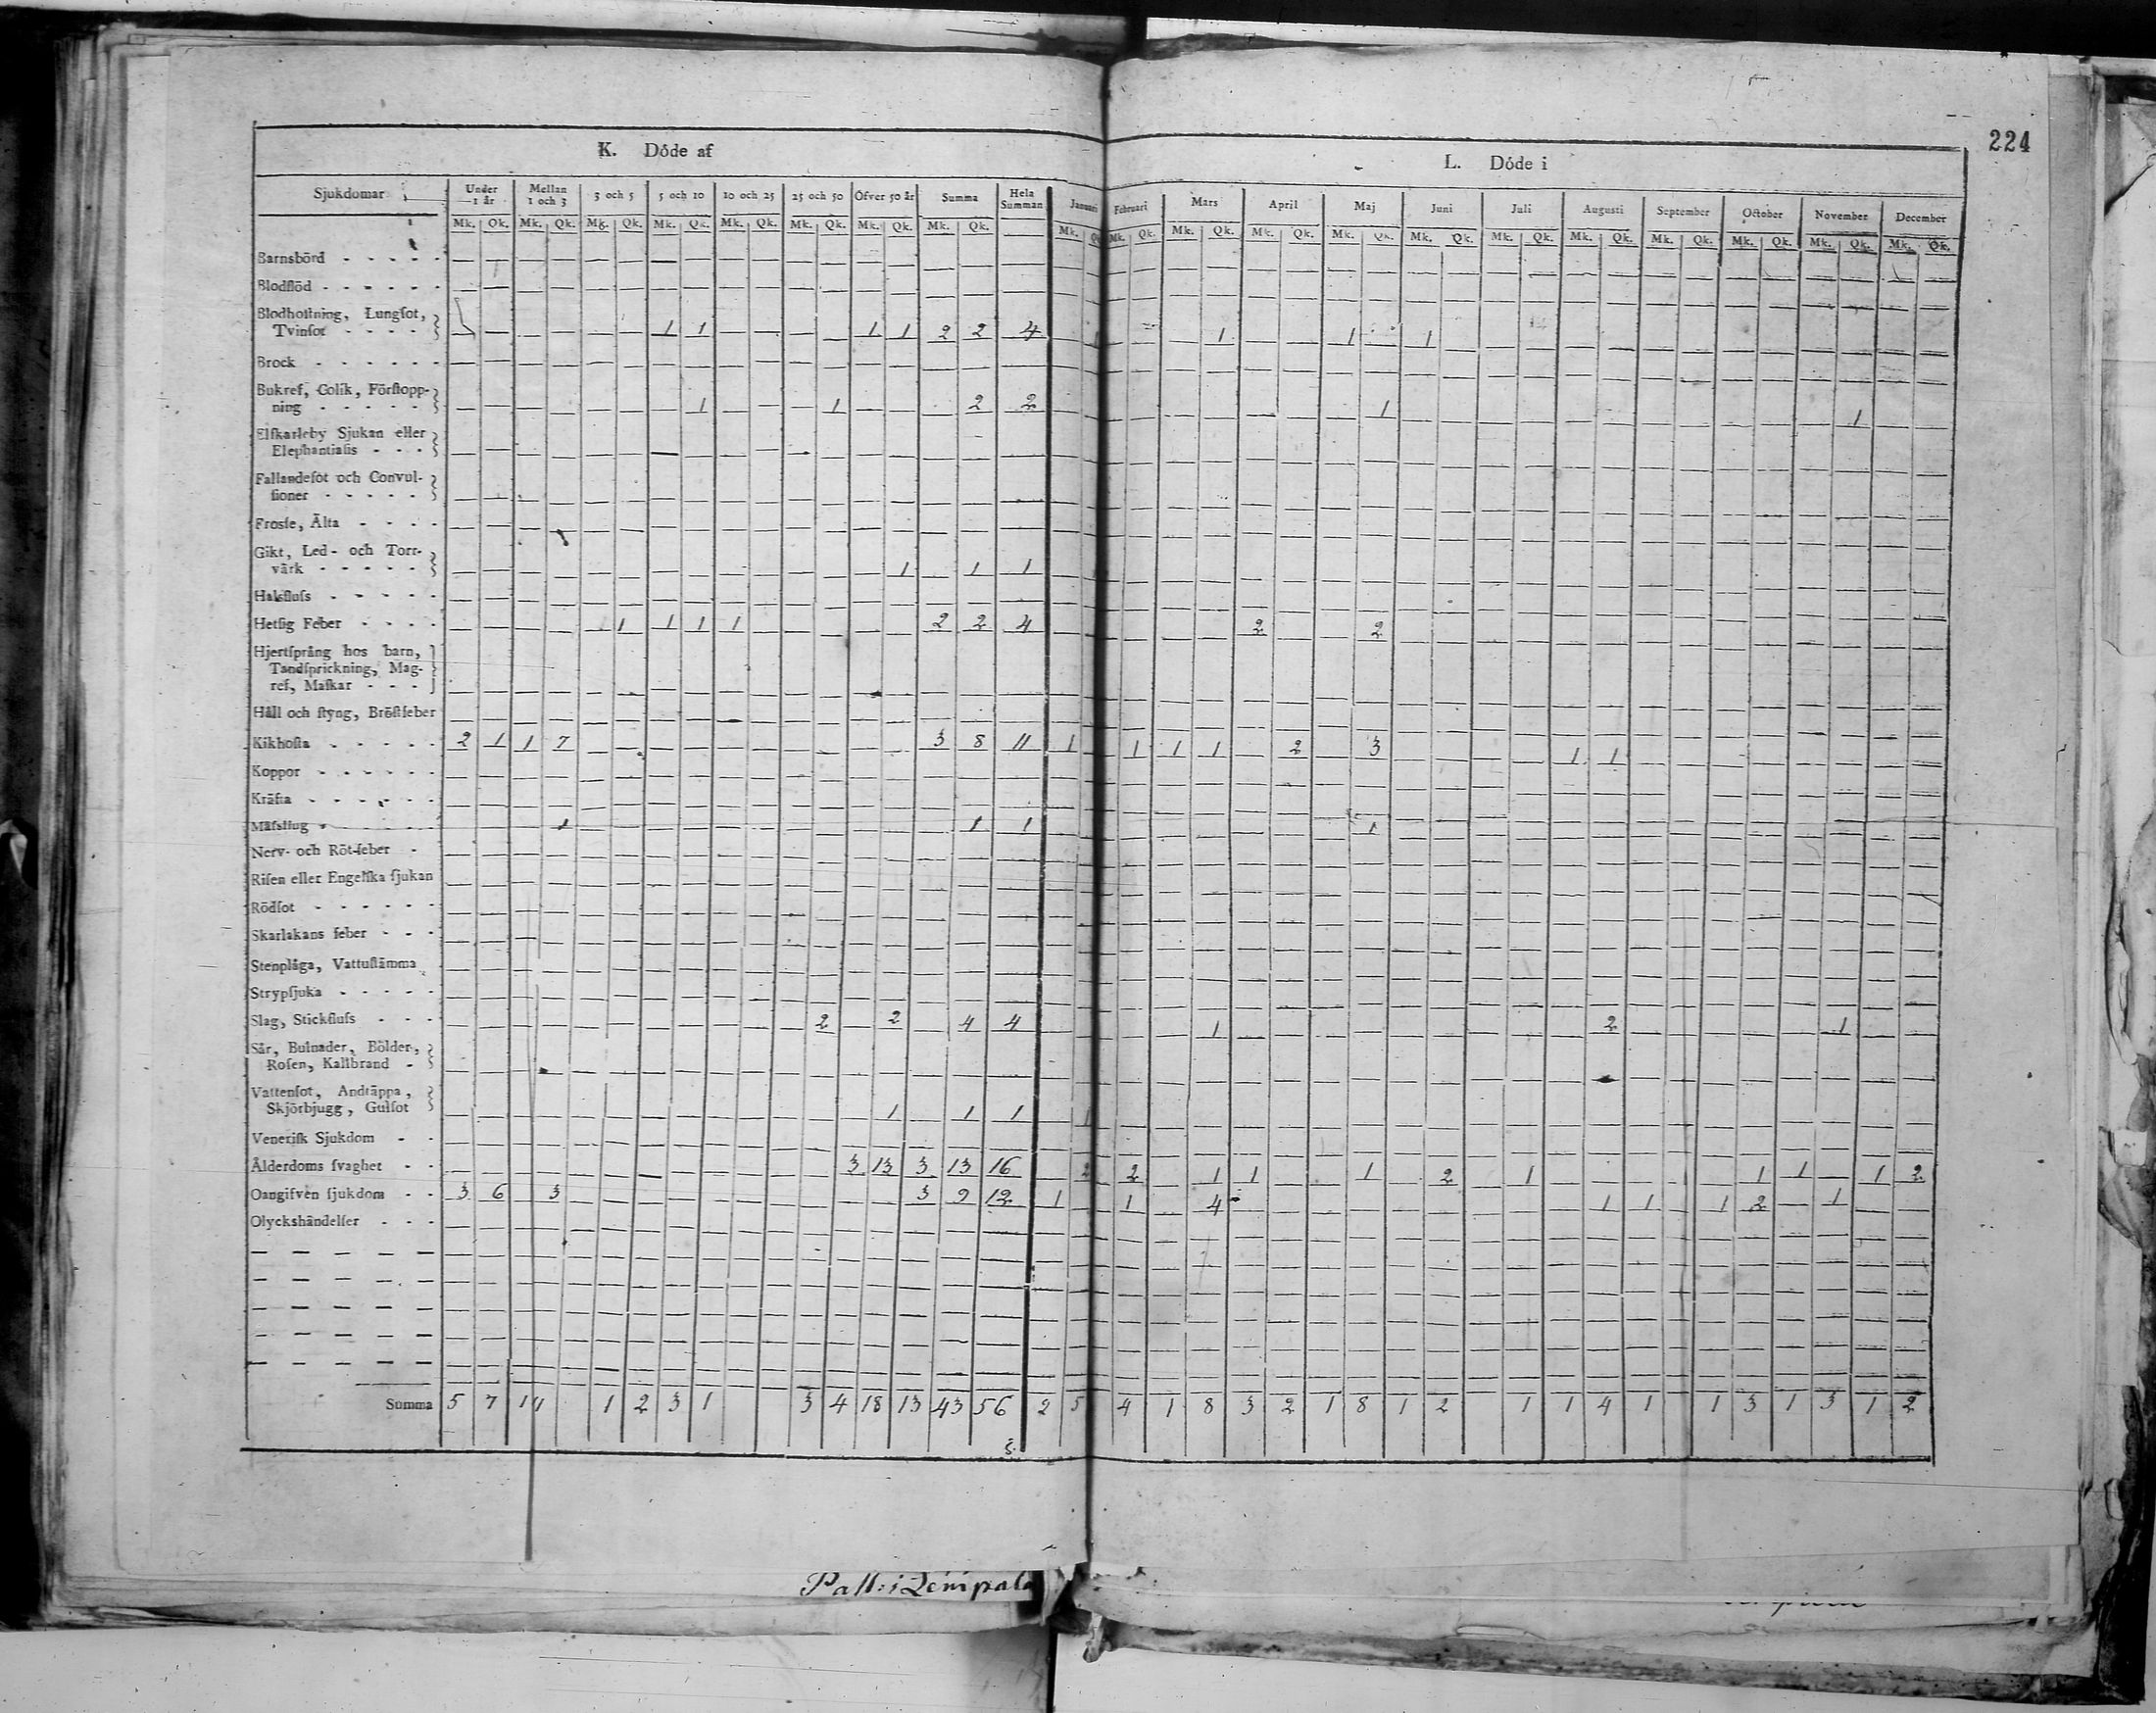 224
K. Döde af
L. Döde i
Sjukdomar Under 1 år Mellan 1 och 3 3 och 5 5 och 10 10 och 25 25 och 50 Öfver 50 år Summa Hela Summan Januari Februari Mars April Maj Juni Juli Augusti September October November December
Mk. Qk. Mk. Qk. Mk. Qk. Mk. Qk. Mk. Qk. Mk. Qk. Mk. Qk. Mk. Qk. Mk. Qk. Mk. Qk. Mk. Qk. Mk. Qk. Mk. Qk. Mk. Qk. Mk. Qk. Mk. Qk. Mk. Qk. Mk. Qk. Mk. Qk. Mk. Qk.
Barnsbörd
Blodflöd
Blodhoſtning, Lungſot,
Tvinſot 1 1 1 1 2 2 4 1 1 1 1
Brock
Bukref, Colik, Förſtopp-
ning 1 1 2 2 1 1
Elſkarleby Sjukan eller
Elephantiaſis
Fallandeſot och Convul-
ſioner
Frosſe, Älta
Gikt, Led- och Torr-
värk 1 1 1
Halsfluſs
Hetſig Feber 1 1 1 1 2 2 4 2 2
Hjertſprång hos barn,
Tandſprickning, Mag-
ref, Maſkar
Håll och ſtyng, Bröſtfeber
Kikhoſta 2 1 1 7 3 8 11 1 1 1 1 2 3 1 1
Koppor
Kräfta
Mäſsling 1 1 1 1
Nerv- och Röt-feber
Riſen eller Engelſka ſjukan
Rödſot
Skarlakans feber
Stenplåga, Vattuſtämma
Strypſjuka
Slag, Stickfluſs 2 2 4 4 1 2 1
Sår, Bulnader, Bölder,
Roſen, Kallbrand
Vattenſot, Andtäppa,
Skjörbjugg, Gulſot 1 1 1 1
Veneriſk Sjukdom
Ålderdoms ſvaghet 3 13 3 13 16 2 2 1 1 1 2 1 1 1 1 2
Oangifven ſjukdom 3 6 3 3 9 12 1 1 4 1 1 1 2 1
Olyckshändelſer
Summa 5 7 1 11 1 2 3 1 3 4 18 13 43 56 2 5 4 1 8 3 2 1 8 1 2 1 1 4 1 1 3 1 3 1 2